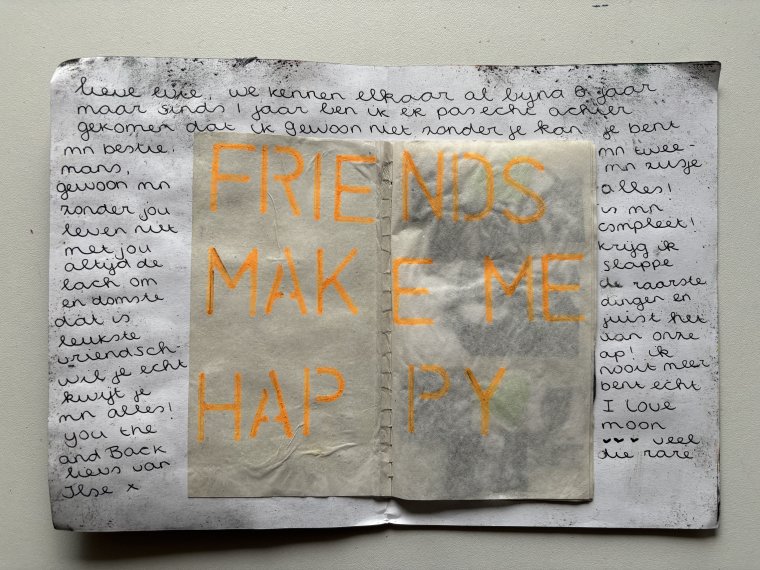 lieve eike, we kennen elkaar al bijna 6 jaar
maar sinds 1 jaar ben ik er pas echt achter
gekomen dat ik gewoon niet zonder je kan je bent
mn bestie, mn twee-
mans, mn zusje
gewoon mn alles!
zonder jou is mn
leven niet compleet!
met jou krijg ik
altijd de slappe
lach om de raarste
en domste dingen en
dat is juist het
leukste van onze
vriendsch- ap! ik
wil je echt nooit meer
kwijt je bent echt
mn alles! I love
you the moon
and Back ♥♥♥ veel
lievs van die rare
Ilse x
FRIENDS
MAKE ME
HAPPY